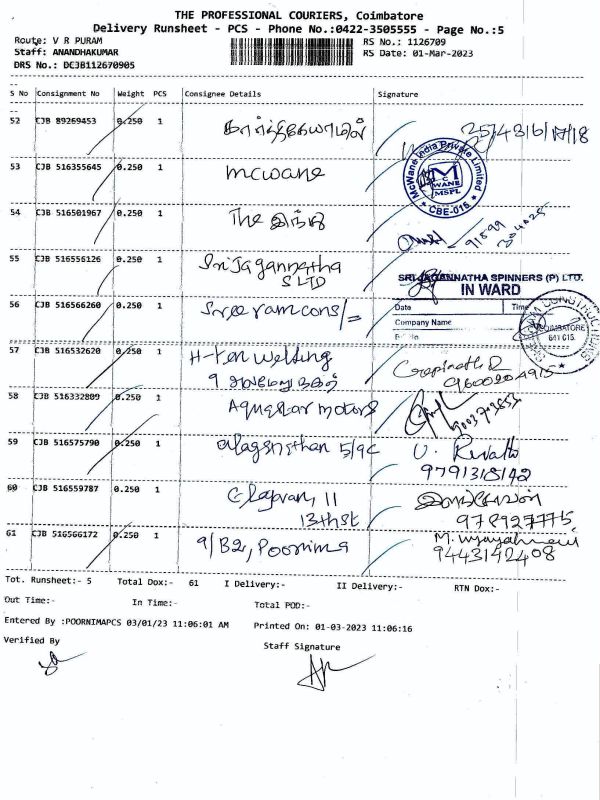 THE PROFESSIONAL COURIERS, Coimbatore
Delivery Runsheet - PCS - Phone No.:0422-3505555 - Page No.:5
Route: V R PURAM
RS No.: 1126709
Staff: ANANDHAKUMAR
RS Date: 01-Mar-2023
DRS No.: DCJB112670905
S No Consignment No Weight PCS Consignee Details Signature
52 CJB 89269453 0.250 1 கார்த்திகேயாயினி 25/4316/17/18
53 CJB 516355645 0.250 1 mcwane
McWane India Private Limited
MCWANE
MSPL
* CBE-016 *
54 CJB 516501967 0.250 1 The இந்து
55 CJB 516556126 0.250 1 Sri Jagannatha
S LTD
SRI JAGANNATHA SPINNERS (P) LTD.
IN WARD
56 CJB 516566260 0.250 1 Sree ram cons/=
Date Time
Company Name
COIMBATORE
641 015
57 CJB 516532620 0.250 1 H-Ten Welting Gopinath R
9600204915
58 CJB 516332809 0.250 1 Aquastar motors 9003703853
59 CJB 516575790 0.250 1 alagansthan 5/9C U. Revathi
9791315142
60 CJB 516559787 0.250 1 Elapvan, 11 இளங்கோவன்
13th st 978927775
61 CJB 516566172 0.250 1 9/B2, Poornima M. Vijayalmani
9443142408
Tot. Runsheet:- 5 Total Dox:- 61 I Delivery:- II Delivery:- RTN Dox:-
Out Time:- In Time:- Total POD:-
Entered By :POORNIMAPCS 03/01/23 11:06:01 AM Printed On: 01-03-2023 11:06:16
Verified By Staff Signature